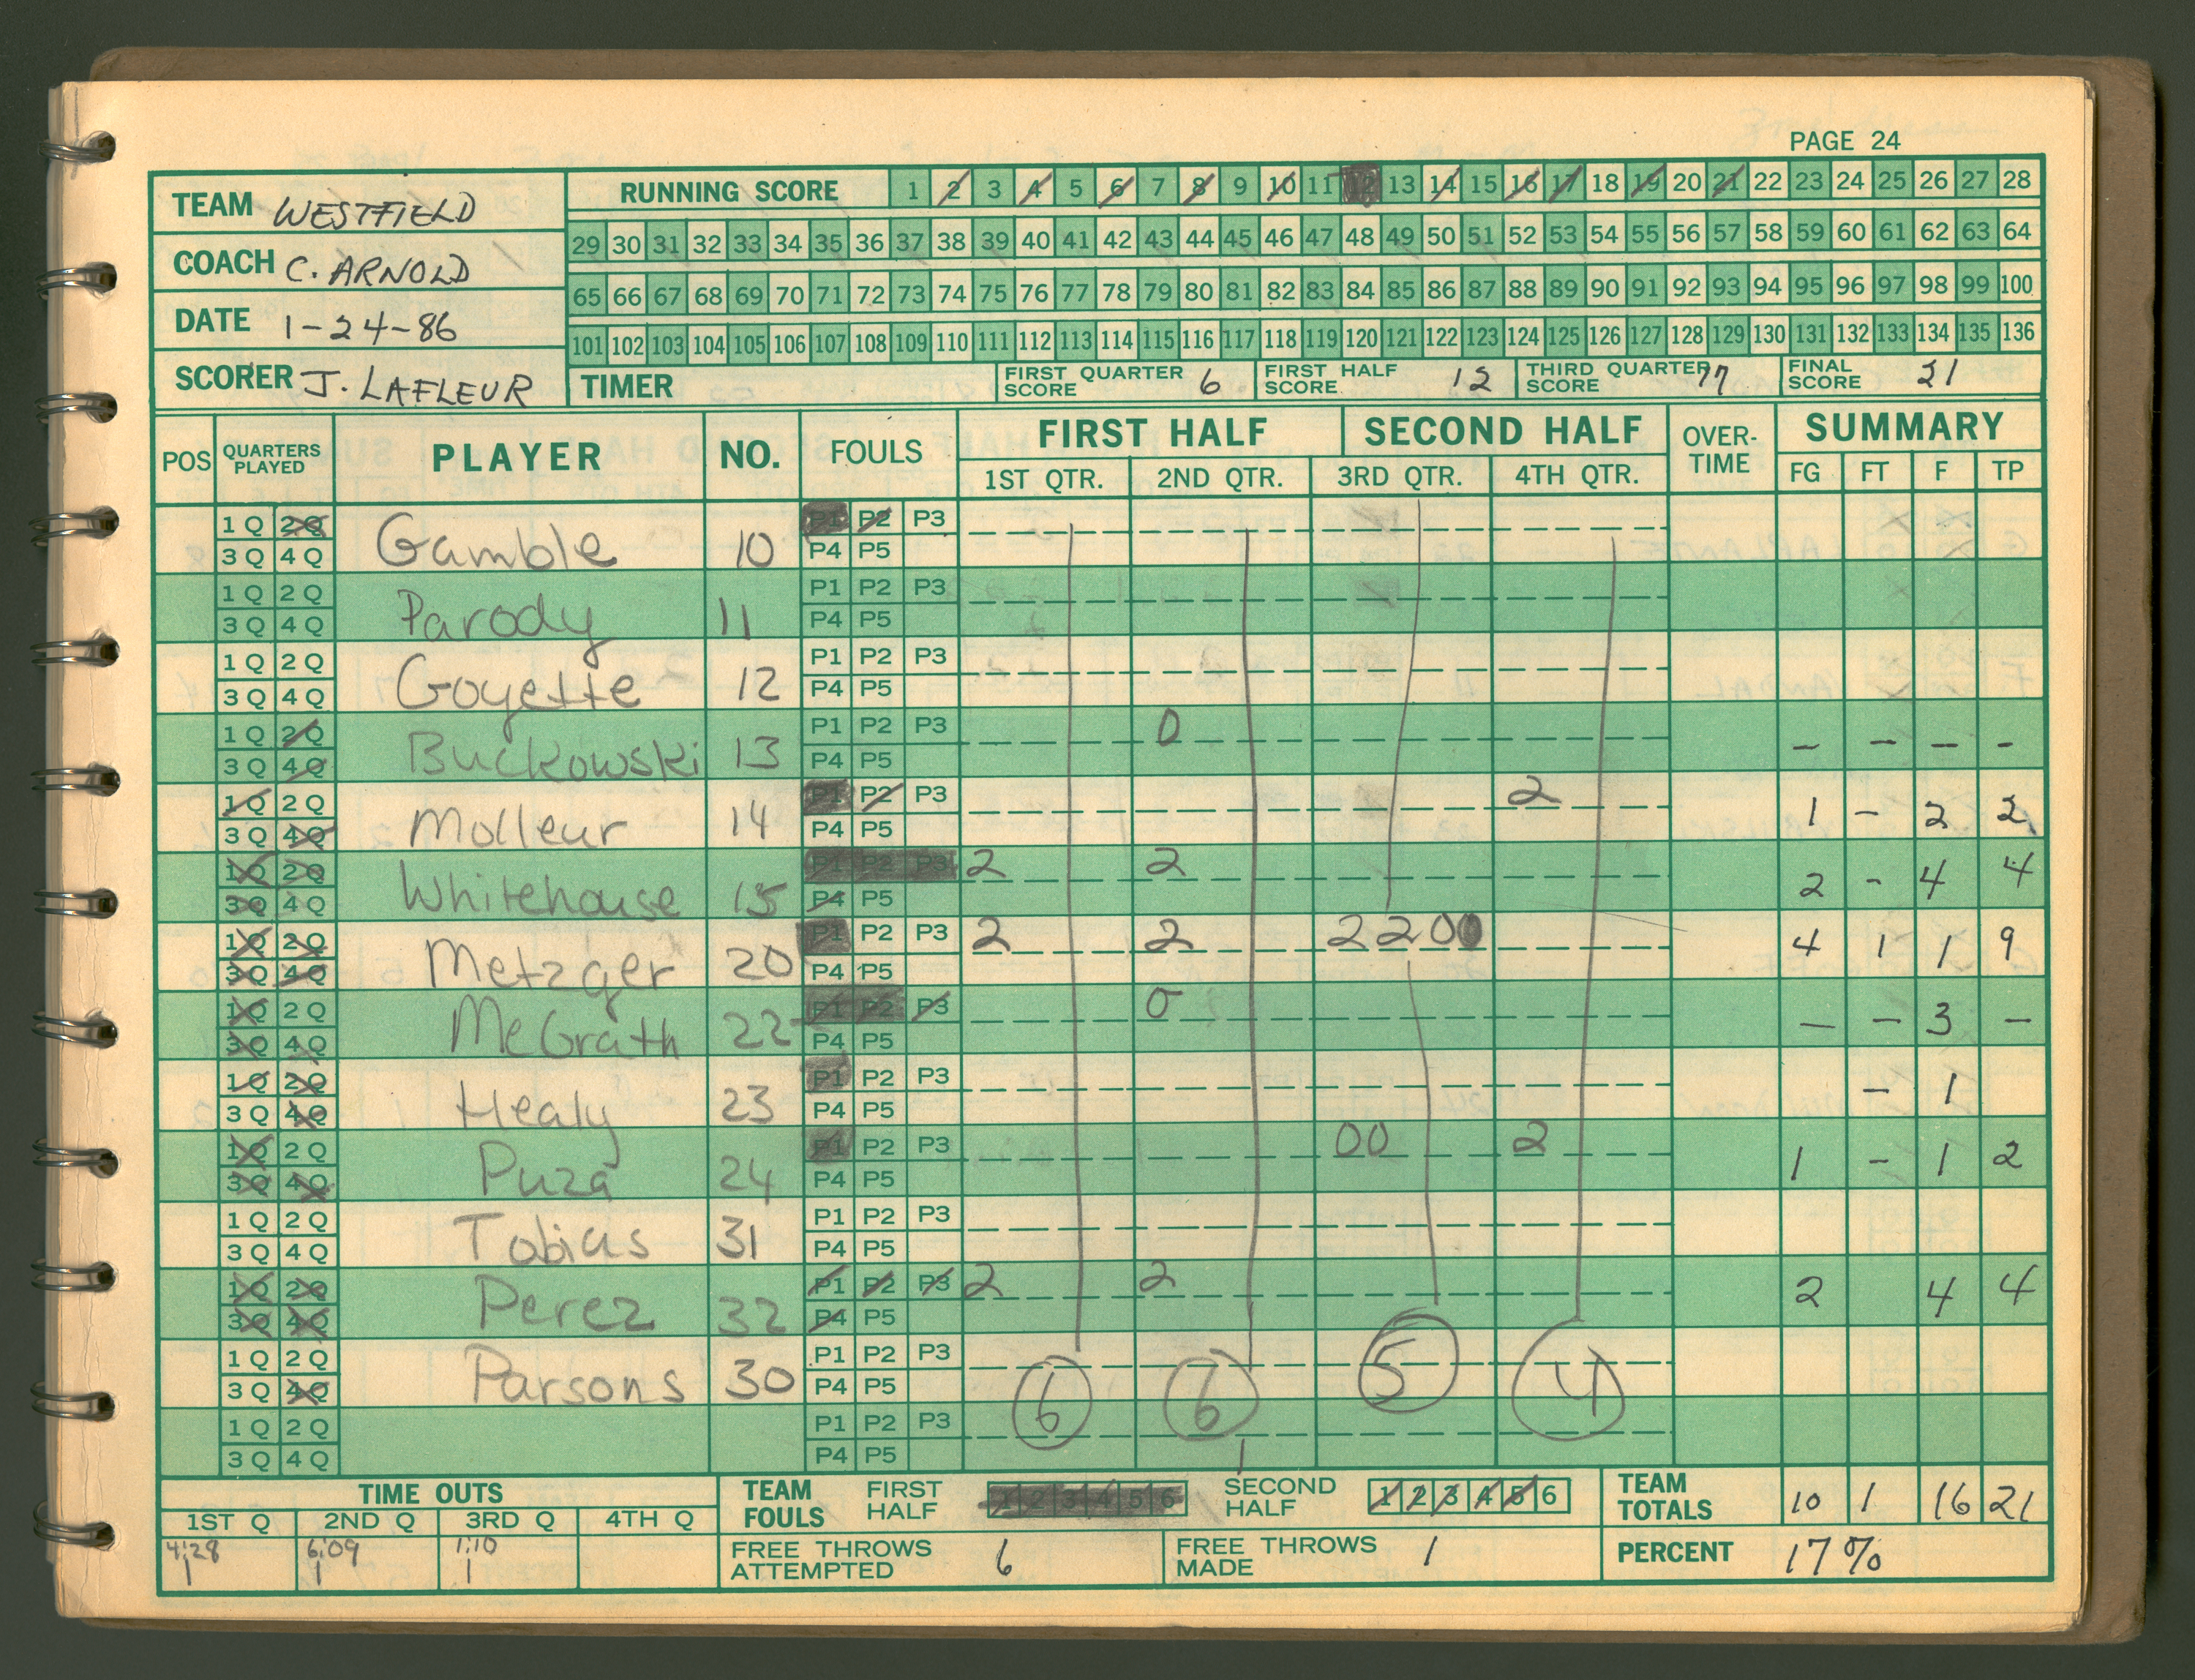 PAGE 24
TEAM WESTFIELD
COACH C. ARNOLD
DATE 1-24-86
SCORER J. LAFLEUR
RUNNING SCORE 1 2 3 4 5 6 7 8 9 10 11 12 13 14 15 16 17 18 19 20 21 22 23 24 25 26 27 28
29 30 31 32 33 34 35 36 37 38 39 40 41 42 43 44 45 46 47 48 49 50 51 52 53 54 55 56 57 58 59 60 61 62 63 64
65 66 67 68 69 70 71 72 73 74 75 76 77 78 79 80 81 82 83 84 85 86 87 88 89 90 91 92 93 94 95 96 97 98 99 100
101 102 103 104 105 106 107 108 109 110 111 112 113 114 115 116 117 118 119 120 121 122 123 124 125 126 127 128 129 130 131 132 133 134 135 136
TIMER FIRST QUARTER SCORE 6 FIRST HALF SCORE 12 THIRD QUARTER SCORE 17 FINAL SCORE 21
POS QUARTERS PLAYED PLAYER NO. FOULS FIRST HALF SECOND HALF OVER-TIME SUMMARY
1ST QTR. 2ND QTR. 3RD QTR. 4TH QTR. FG FT F TP
1 Q 2 Q P1 P2 P3
3 Q 4 Q Gamble 10 P4 P5
1 Q 2 Q P1 P2 P3
3 Q 4 Q Parody 11 P4 P5
1 Q 2 Q P1 P2 P3
3 Q 4 Q Goyette 12 P4 P5
1 Q 2 Q P1 P2 P3 0
3 Q 4 Q Buckowski 13 P4 P5 - - - -
1 Q 2 Q P1 P2 P3 2
3 Q 4 Q Molleur 14 P4 P5 1 - 2 2
1 Q 2 Q P1 P2 P3 2 2
3 Q 4 Q Whitehouse 15 P4 P5 2 - 4 4
1 Q 2 Q P1 P2 P3 2 2 2 2 0 0
3 Q 4 Q Metzger 20 P4 P5 4 1 1 9
1 Q 2 Q P1 P2 P3 0
3 Q 4 Q McGrath 22 P4 P5 - - 3 -
1 Q 2 Q P1 P2 P3
3 Q 4 Q Healy 23 P4 P5 - 1
1 Q 2 Q P1 P2 P3 00 2
3 Q 4 Q Puza 24 P4 P5 1 - 1 2
1 Q 2 Q P1 P2 P3
3 Q 4 Q Tobias 31 P4 P5
1 Q 2 Q P1 P2 P3 2 2
3 Q 4 Q Perez 32 P4 P5 2 4 4
1 Q 2 Q P1 P2 P3
3 Q 4 Q Parsons 30 P4 P5 6 6 5 4
1 Q 2 Q P1 P2 P3
3 Q 4 Q P4 P5 1
TIME OUTS TEAM FOULS FIRST HALF 1 2 3 4 5 6 SECOND HALF 1 2 3 4 5 6 TEAM TOTALS 10 1 16 21
1ST Q 2ND Q 3RD Q 4TH Q
4:28 6:09 1:10 FREE THROWS ATTEMPTED 6 FREE THROWS MADE 1 PERCENT 17%
1 1 1